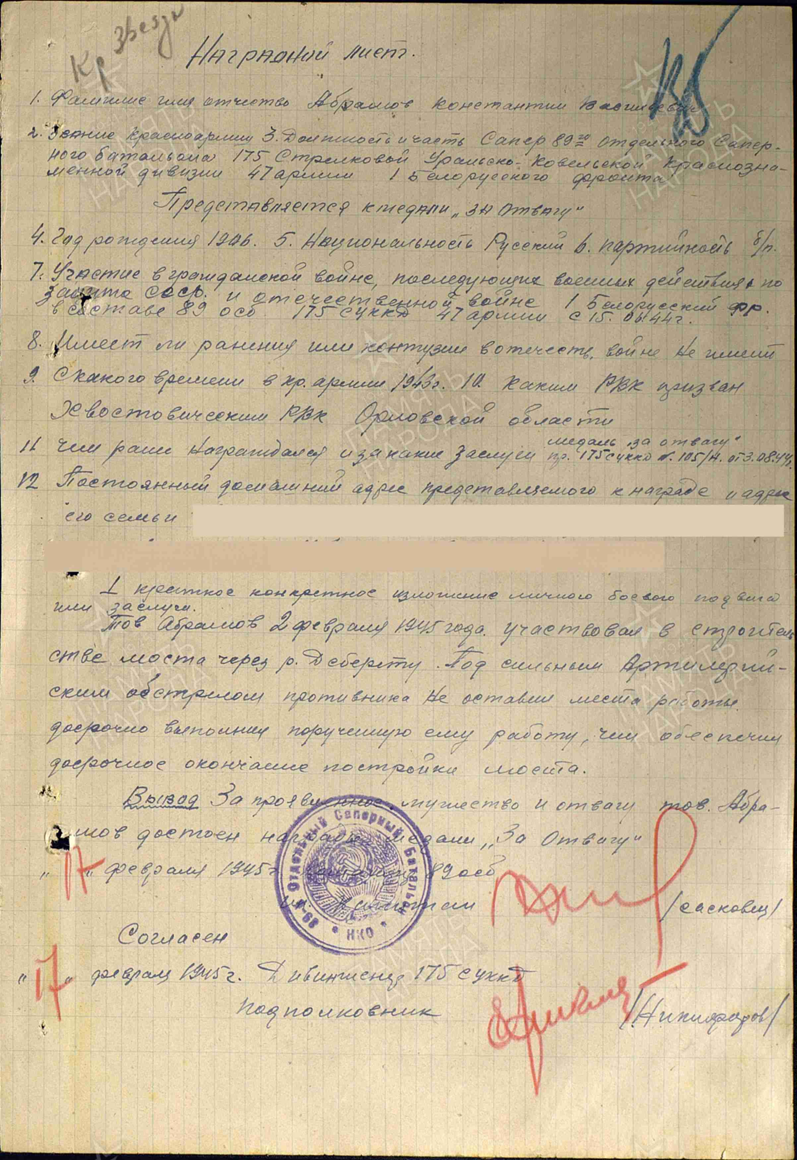 Кр Звезды
Наградной лист.
1. Фамилие имя отчество Абрамов Константин Васильевич
2. Звание Красноармеец 3. Должность и часть Сапер 89го отдельного Сапер-
ного батальона 175 Стрелковой Уральско-Ковельской Краснозна-
менной дивизии 47 армии 1 Белорусского фронта
Представляется к медали „За Отвагу"
4. Год рождения 1906. 5. Национальность Русский 6. партийность б/п.
7. Участие в гражданской войне, последующих военных действиях по
защите СССР. и отечественной войне 1 Белорусский фр.
в составе 89 осб 175 суккд 47 армии с 15.
8. Имеет ли ранения или контузии в отечеств. войне Не имеет
9. С какого времени в кр. армии 1943г. 10. Каким РВК призван
Хвостовическим РВК Орловской области
11 Чем ранее Награждался и за какие заслуги медаль „за отвагу"
пр. 175 суккд № 105/н. от 3.08.44г.
12 Постоянный домашний адрес представляемого к награде и адрес
его семьи
I краткое конкретное изложение личного боевого подвига
или заслуги.
Тов Абрамов 2 февраля 1945 года. участвовал в строитель
стве моста через р. . Под сильным Артиллерий-
ским обстрелом противника Не оставил места работы
досрочно выполнил порученную ему работу, чем обеспечил
досрочное окончание постройки моста.
Вывод За проявленное мужество и отвагу тов. Абра-
мов достоен награды медали „За Отвагу"
„17" февраля 1945г 89 осб
Капитан /Сасковец/
89-й Отдельный Саперный Батальон НКО
Согласен
„17" феврал 1945г. Дивинженер 175 сукkд
подполковник /Никифоров/
ПАМЯТЬ НАРОДА